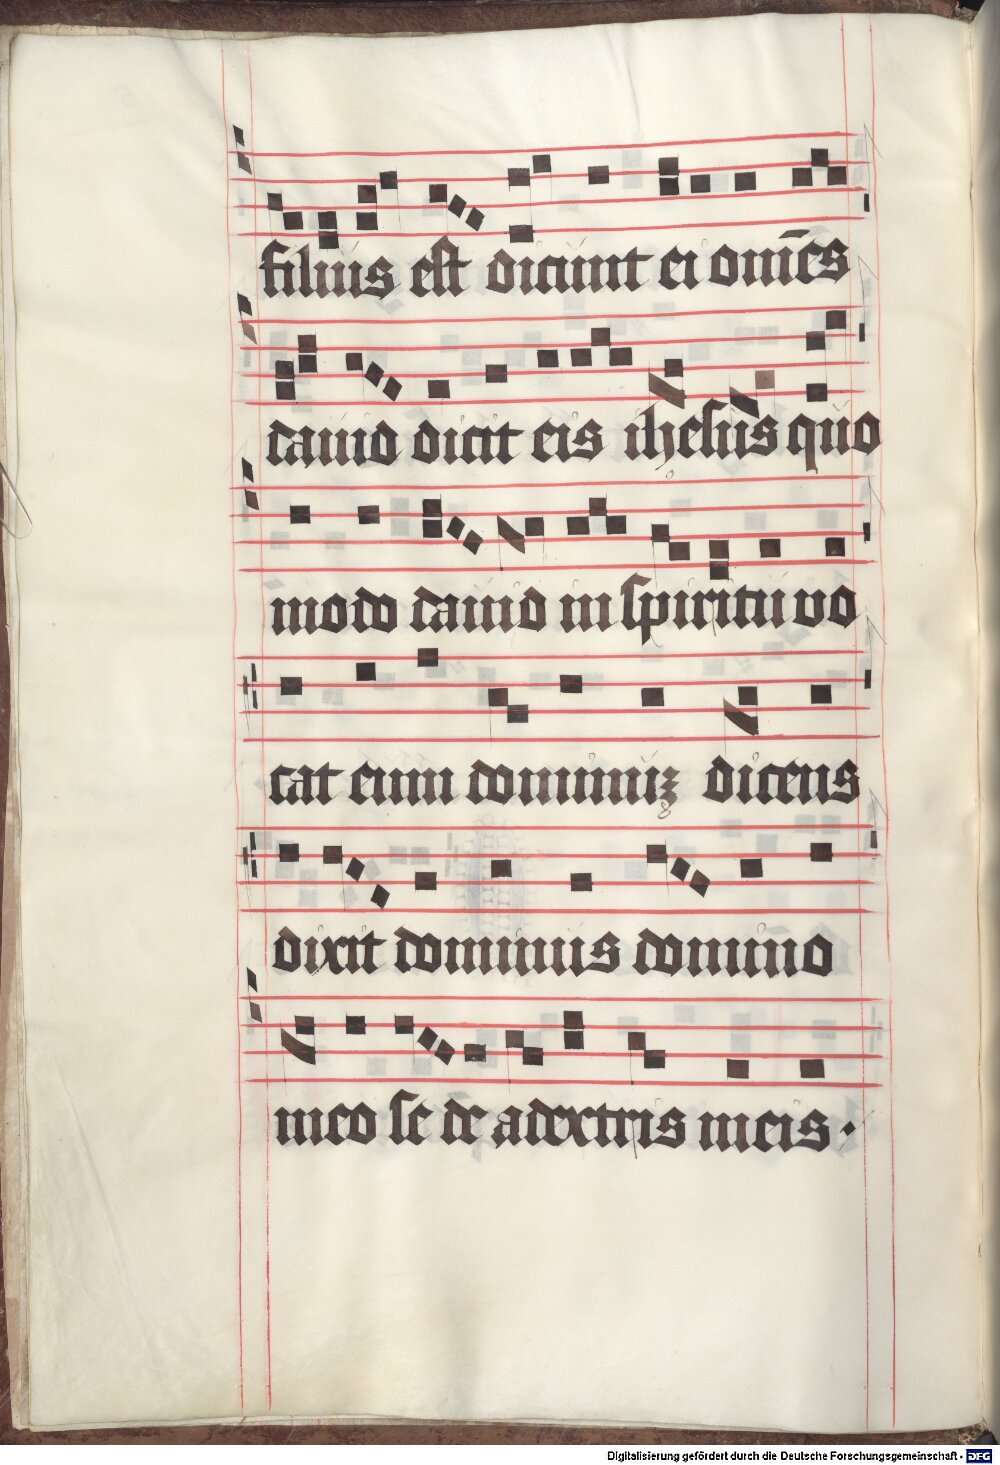 filius est dicunt ei om̄es
dauid dicit eis ihesus quo
modo dauid in spiritu vo
cat eum dominuꝫ dicens
dixit dominus domino
meo se de adextris meis ·
Digitalisierung gefördert durch die Deutsche Forschungsgemeinschaft - DFG